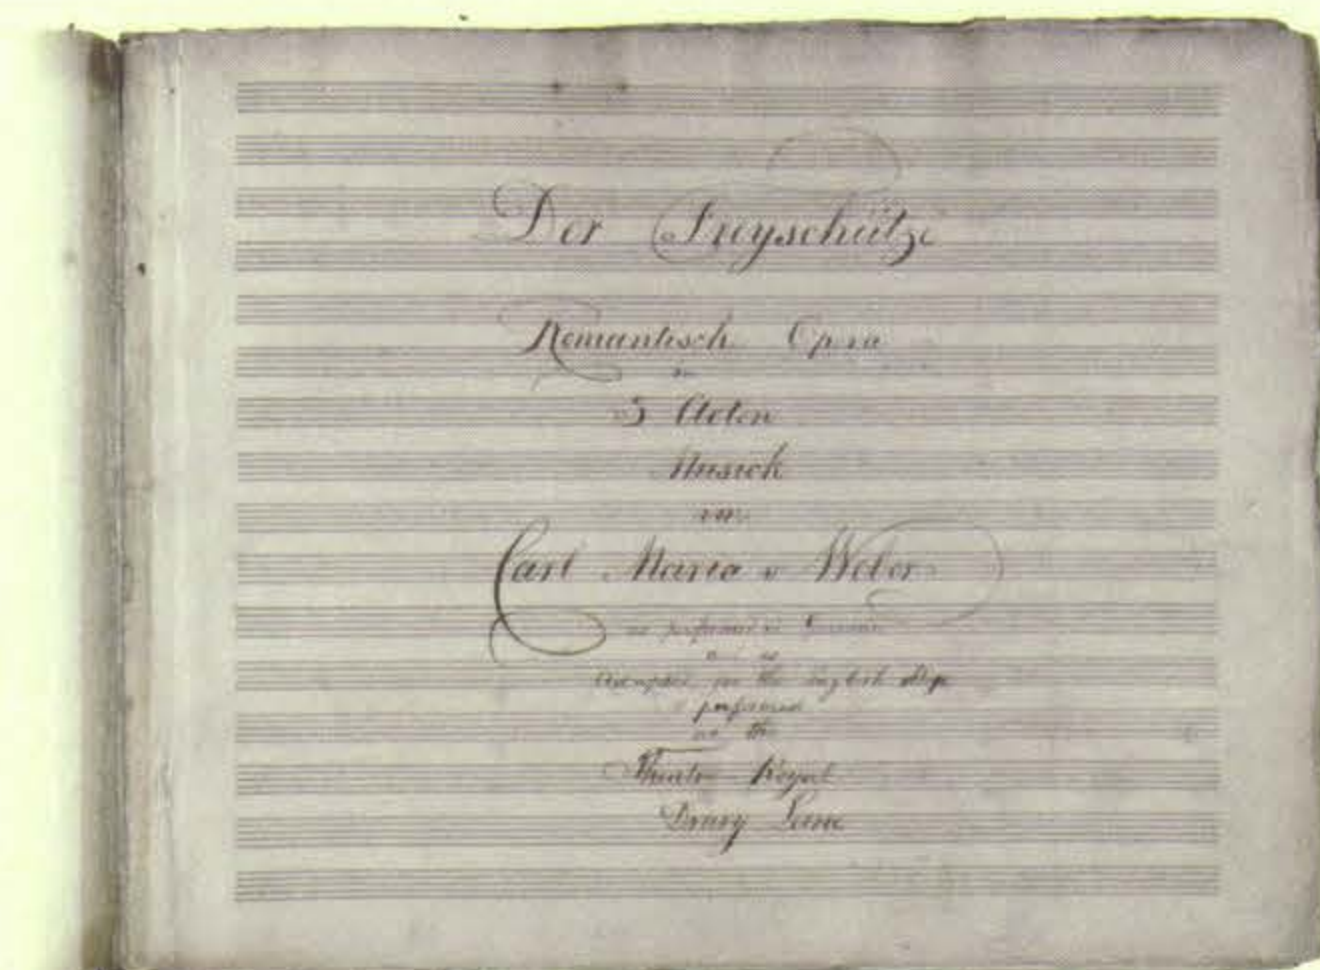 Der Freyschütze
Romantisch Opera
in
3 Acten
Musick
von
Carl Maria v Weber
as performed in Germany
and as
for the English Stage
performed
at the
Theatre Royal
Drury Lane